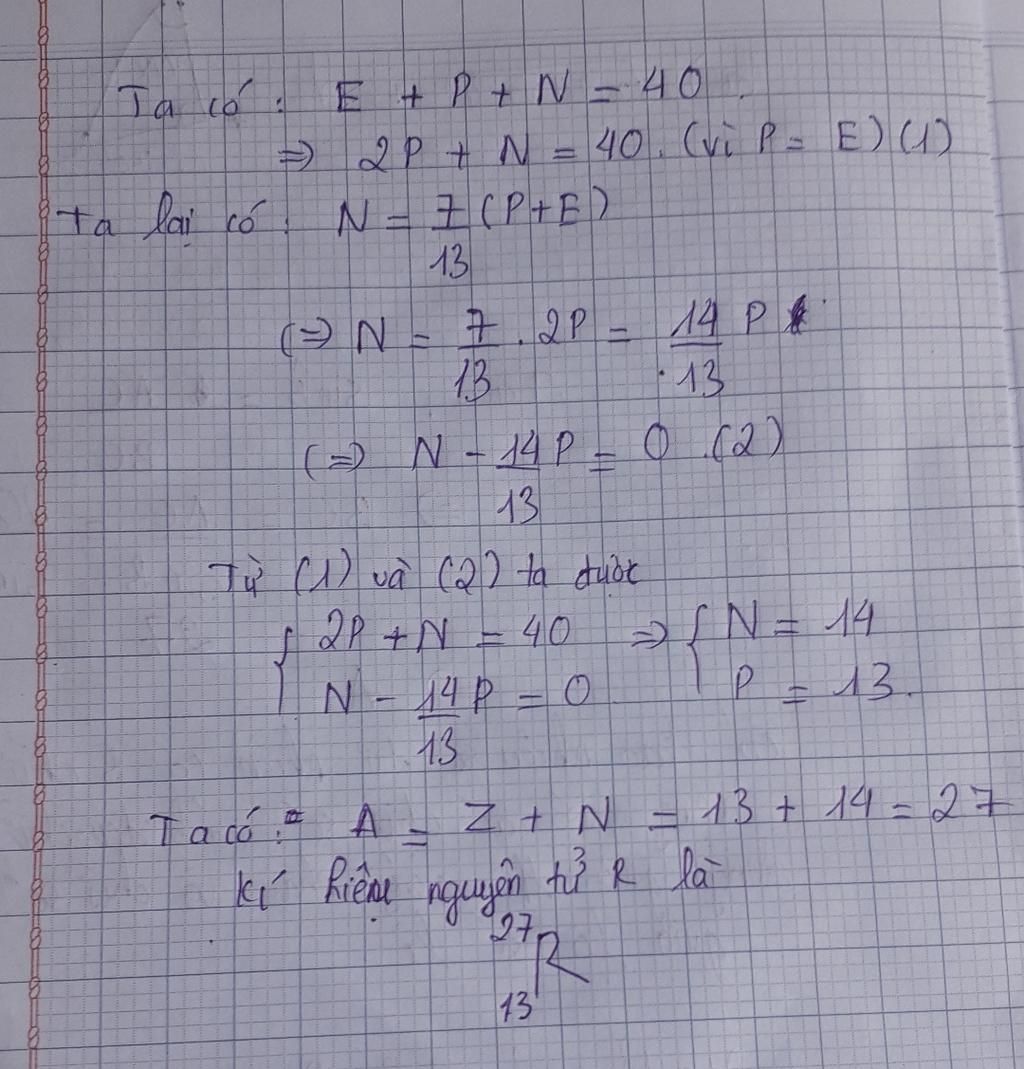 Ta có : E + P + N = 40.
=> 2P + N = 40. (vì P = E) (1)
Ta lại có : N = 7/13 (P+E)
(=) N = 7/13 . 2P = 14/13 P
(=) N - 14/13 P = 0 (2)
Từ (1) và (2) ta được
{ 2P + N = 40 => { N = 14
N - 14/13 P = 0 P = 13.
Ta có : A = Z + N = 13 + 14 = 27
Kí hiệu nguyên tử R là
27
R
13